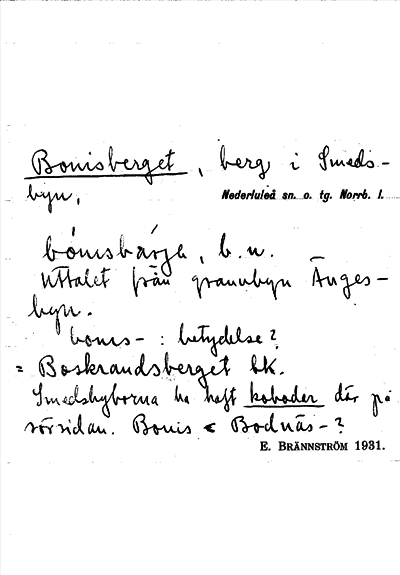 Bonisberget, berg i Smeds-
byn, Nederluleå sn. o. tg. Norrb. l.
bónisbárje, b. n.
Uttalet från grannbyn Änges-
byn.
bonis- : betydelse?
= Boskrandsberget EK.
Smedsbyborna ha haft koboder där på
sörsidan. Bonis < Bodnäs-?
E. BRÄNNSTRÖM 1931.